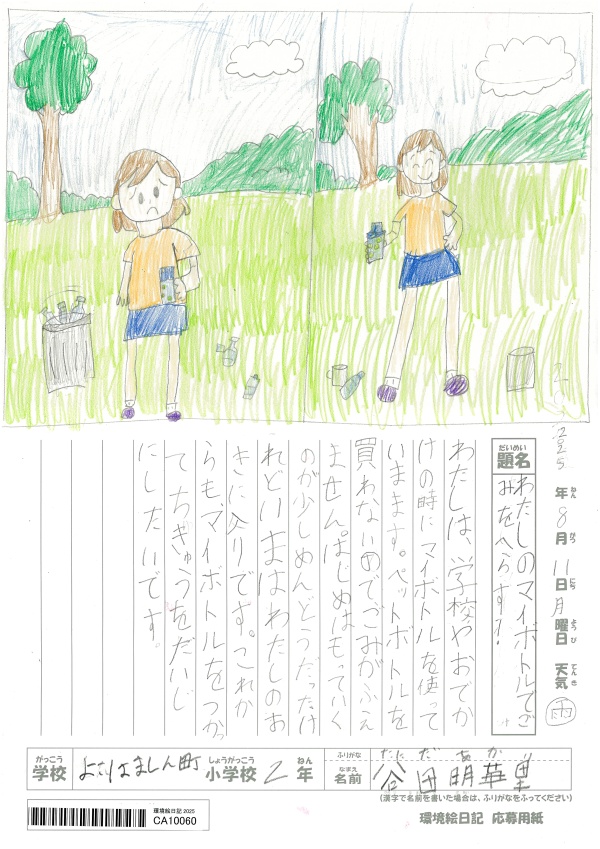 2025年ねん8月がつ11日にち月曜日ようび天気てんき雨
だいめい
題名
わたしのマイボトルでご
みをへらす!
わたしは、学校やおでか
けの時にマイボトルを使って
いまます。ペットボトルを
買わないのでごみがふえ
ません。はじめはもっていく
のが少しめんどうだったけ
れどいまはわたしのお
きに入りです。これか
らも、マイボトルをつかっ
てちきゅうをだいじ
にしたいです。
がっこう しょうがっこう ねん
学校 小学校 2 年
ふりがな たに だ あか
なまえ
名前 谷田明華里
(漢字で名前を書いた場合は、ふりがなをふってください)
環境絵日記 2025
CA10060
環境絵日記 応募用紙